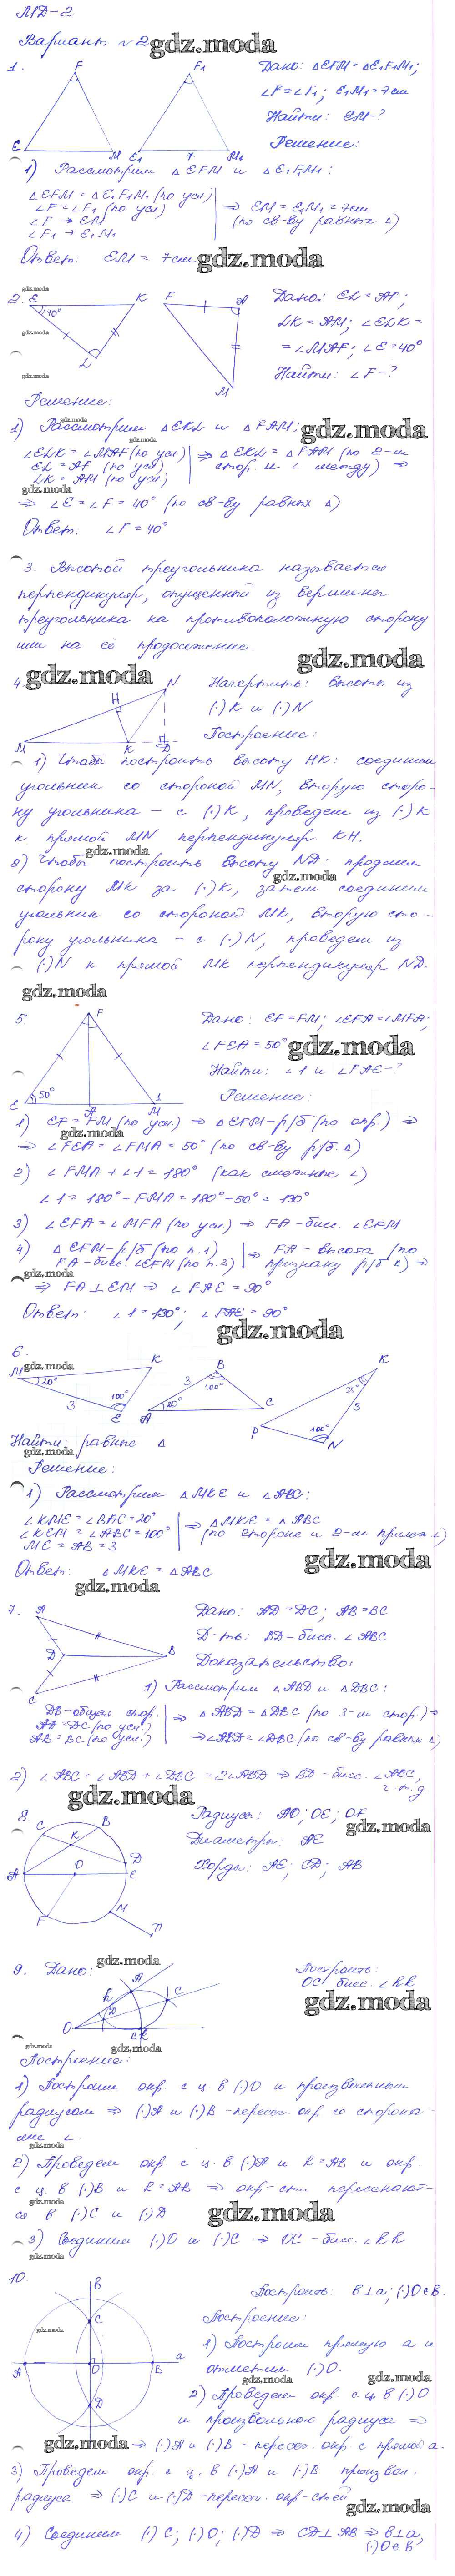 МД-2
Вариант №2 gdz.moda
1. F F₁ Дано: △EFM = △E₁F₁M₁;
∠F = ∠F₁; E₁M₁ = 7см
Найти: EM-?
E M E₁ 7 M₁ Решение:
1) Рассмотрим △EFM и △E₁F₁M₁:
△EFM = △E₁F₁M₁ (по усл)
∠F = ∠F₁ (по усл) ⇒ EM = E₁M₁ = 7см
∠F → EM (по св-ву равных △)
∠F₁ → E₁M₁
Ответ: EM = 7см gdz.moda
gdz.moda
2. E K F A Дано: EL = AF;
40° LK = AM; ∠ELK =
gdz.moda
L = ∠MAF; ∠E = 40°
gdz.moda M Найти: ∠F-?
Решение:
gdz.moda
1) Рассмотрим △EKL и △FAM: gdz.moda
∠ELK = ∠MAF (по усл) ⇒ △EKL = △FAM (по 2-м
EL = AF (по усл) стор. и ∠ между) ⇒
LK = AM (по усл)
gdz.moda
⇒ ∠E = ∠F = 40° (по св-ву равных △)
Ответ. ∠F = 40°
3. Высотой треугольника называется
перпендикуляр, опущенный из вершины
треугольника на противоположную сторону
или на её продолжение.
gdz.moda
4. gdz.moda N Начертить: высоты из
H (·)K и (·)N
M K D Построение:
1) Чтобы построить высоту HK: соединим
угольник со стороной MN, вторую сторо-
ну угольника - с (·)K, проведем из (·)K
к прямой MN перпендикуляр KH.
gdz.moda
2) Чтобы построить высоту ND: продлим
gdz.moda
сторону MK за (·)K, затем соединим
угольник со стороной MK, вторую сто-
рону угольника - с (·)N, проведем из
(·)N к прямой MK перпендикуляр ND.
gdz.moda
5. F Дано: EF = FM; ∠EFA = ∠MFA;
∠FEA = 50° gdz.moda
Найти: ∠1 и ∠FAE-?
E 50° A M 1 Решение:
1) EF = FM (по усл.) ⇒ △EFM - р/б (по опр.) ⇒
gdz.moda
⇒ ∠FEA = ∠FMA = 50° (по св-ву р/б. △)
2) ∠FMA + ∠1 = 180° (как смежные ∠)
∠1 = 180° - FMA = 180° - 50° = 130°
3) ∠EFA = ∠MFA (по усл) ⇒ FA - бисс. ∠EFM
4) △EFM - р/б (по п.1) ⇒ FA - высота (по
FA - бисс. ∠EFM (по п.3) признаку р/б △) ⇒
gdz.moda
⇒ FA ⊥ EM ⇒ ∠FAE = 90°
Ответ: ∠1 = 130°; ∠FAE = 90°
gdz.moda
6. K B K
M gdz.moda
20° 3 100° E A 3 20° 100° C P 100° N 3 25°
Найти: равные △
gdz.moda
Решение:
1) Рассмотрим △MKE и △ABC:
∠KME = ∠BAC = 20° ⇒ △MKE = △ABC
∠KEM = ∠ABC = 100° (по стороне и 2-м прилеж. ∠)
ME = AB = 3 gdz.moda
Ответ: △MKE = △ABC
gdz.moda
7. A Дано: AD = DC; AB = BC
D B Д-ть: BD - бисс. ∠ABC
Доказательство:
C 1) Рассмотрим △ABD и △DBC:
DB - общая стор. ⇒ △ABD = △DBC (по 3-м стор.) ⇒
AD = DC (по усл.)
AB = BC (по усл.) ⇒ ∠ABD = ∠DBC (по св-ву равных △)
2) ∠ABC = ∠ABD + ∠DBC = 2∠ABD ⇒ BD - бисс. ∠ABC,
ч.т.д.
gdz.moda
8. C B Радиусы: AO; OE; OF
K gdz.moda
D Диаметры: AE
A O E Хорды: AE; CD; AB
F M
gdz.moda
9. Дано: Построить:
A C OC - бисс. ∠hk
h D gdz.moda
O B K
gdz.moda gdz.moda
Построение:
1) Построим окр с ц. в (·)O и произвольным
радиусом ⇒ (·)A и (·)B - пересеч. окр со сторона-
ми ∠.
gdz.moda
2) Проведем окр с ц. в (·)A и R = AB и окр.
с ц. в (·)B и R = AB ⇒ окр-сти пересекают-
gdz.moda
ся в (·)C и (·)D gdz.moda
3) Соединим (·)O и (·)C ⇒ OC - бисс. ∠hk
gdz.moda
10. B Построить: B⊥a; (·)O∈B.
gdz.moda C Построение:
1) Построим прямую a и
A O B a отметим (·)O.
gdz.moda gdz.moda
2) Проведем окр. с ц. в (·)O
D и произвольного радиуса ⇒
gdz.moda ⇒ (·)A и (·)B - пересеч. окр с прямой a.
3) Проведем окр. с ц. в (·)A и (·)B произвол.
радиуса ⇒ (·)C и (·)D - пересеч. окр-стей
gdz.moda
4) Соединим (·)C; (·)O; (·)D ⇒ CD⊥AB ⇒ B⊥a,
(·)O∈B